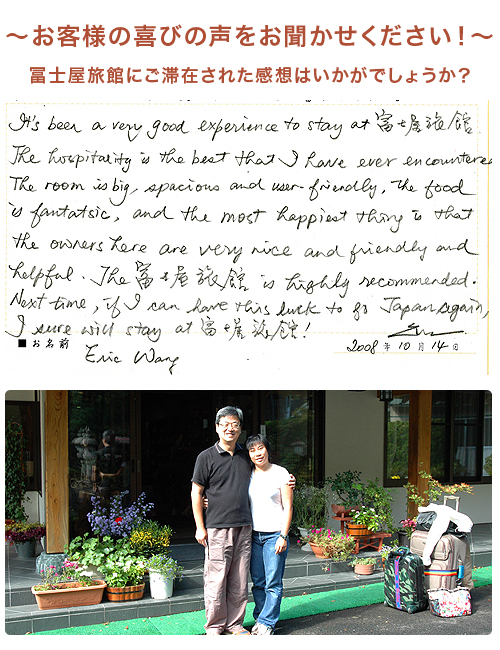 ～お客様の喜びの声をお聞かせください！～
冨士屋旅館にご滞在された感想はいかがでしょうか？
It's been a very good experience to stay at 富士屋旅館
The hospitality is the best that I have ever encountered
The room is big, spacious and user-friendly, The food
is fantatsic, and the most happiest thing is that
the owners here are very nice and friendly and
helpful. The 富士屋旅館 is highly recommended.
Next time, if I can have this luck to go Japan again,
I sure will stay at 富士屋旅館!
■お名前
Eric Wang
2008年10月14日